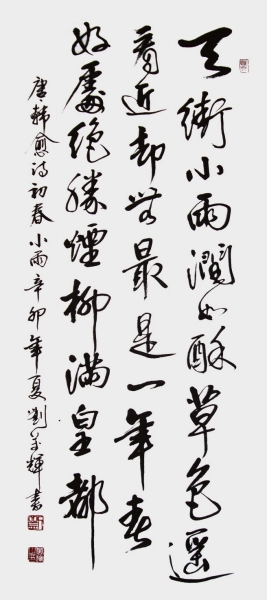 天街小雨潤如酥草色遥
看近却無最是一年春
好處絶勝煙柳滿皇都
唐韓愈詩初春小雨辛卯年夏劉
輝書